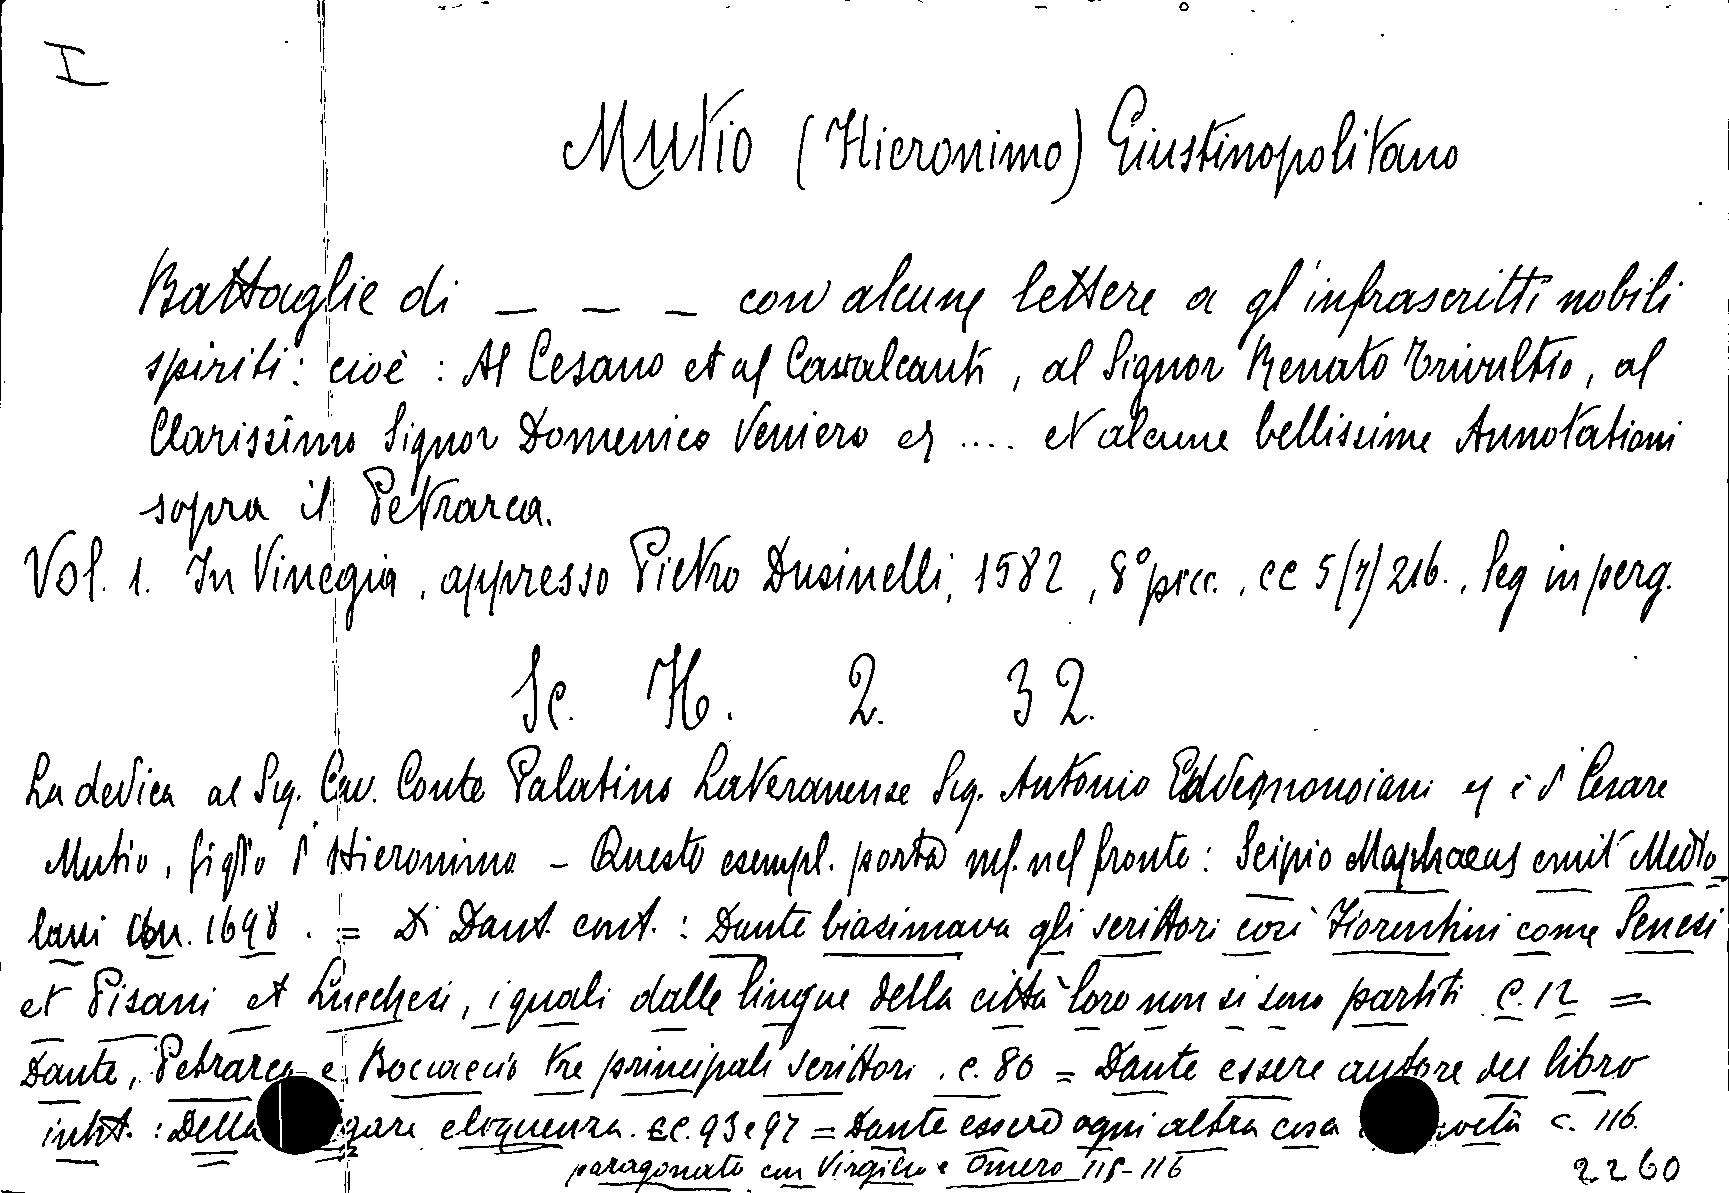 I
Mutio (Hieronimo) Giustinopolitano
Battaglie di _ _ _ con alcune lettere a gl'infrascritti nobili
spiriti: cioè: Al Cesano et al Cavalcanti, al Signor Renato Trivultio, al
Clarissimo Signor Domenico Veniero .... et alcune bellissime Annotationi
sopra il Petrarca.
Vol. 1. In Vinegia, appresso Pietro Dusinelli, 1582, 8° picc., cc 5/(7)/216., leg in perg.
Sc. H. 2. 32.
La dedica al Sig. Cav. Conte Palatino Lateranense Sig. Antonio è d Cesare
Mutio, figlio d Hieronimo - Questo esempl. porta ms. nel fronte: Scipio Maphaeus emit Medio-
lani 1698. = Di Dant. cont.: Dante biasimava gli scrittori così Fiorentini come Senesi
et Pisani et Lucchesi, i quali dalle lingue della città loro non si sono partiti c. 12 =
Dante, Petrarca e Boccaccio tre principali scrittori. c. 80 = Dante essere autore del libro
intit.: Della gare eloquenza. cc. 93 e 97 = Dante essere ogni altra cosa c. 116.
paragonato con Virgilio e Omero 115-116
2260